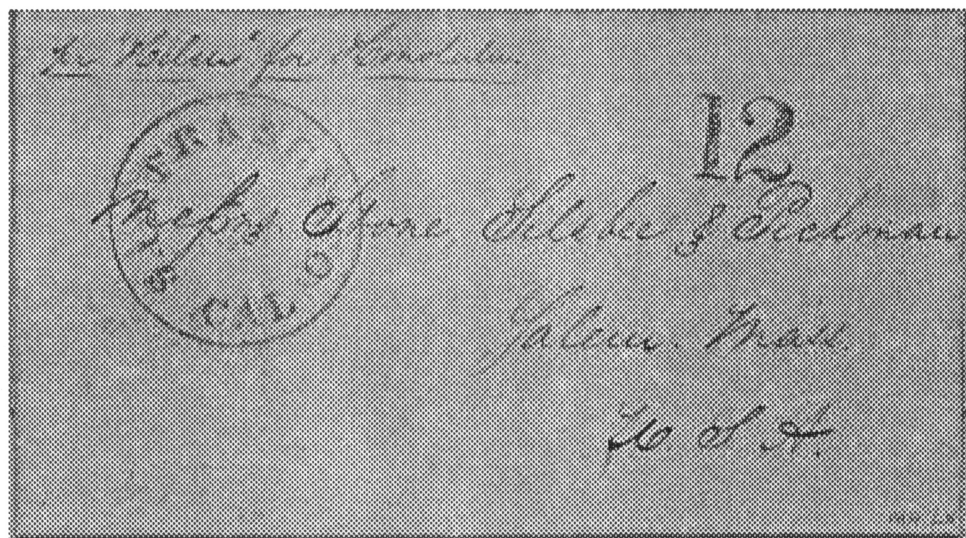 Per for Honolulu.
12
SAN FRANCISCO
CAL.
Messrs. Stone, Silsbee & Pickman
Salem. Mass.
U. S. A.